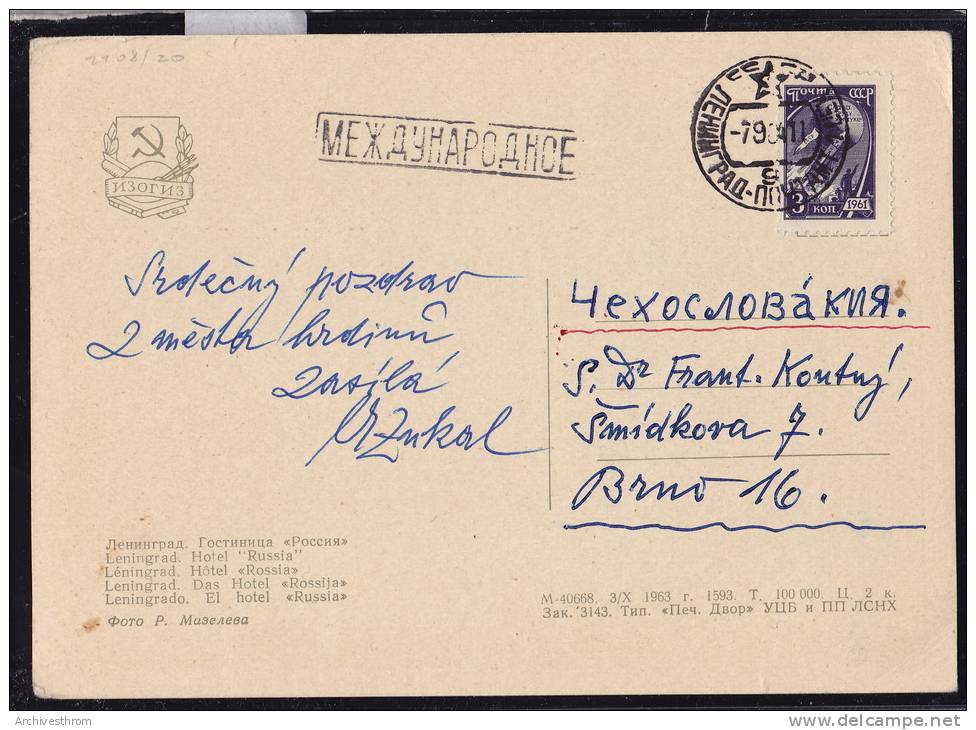 2108/20
ИЗОГИЗ
МЕЖДУНАРОДНОЕ
ЛЕНИНГРАД-ПОЧТАМТ
-7 9 64 11
ПОЧТА СССР
3 КОП. 1961
Srdečný pozdrav
z města hrdinů
zasílá
Zukal
Чехослова́кия.
S. Dr Frant. Kontný,
Šmídkova 7.
Brno 16.
Ленинград. Гостиница «Россия»
Leningrad. Hotel "Russia"
Léningrad. Hôtel «Rossia»
Leningrad. Das Hotel «Rossija»
Leningrado. El hotel «Russia»
Фото Р. Мазелева
М-40668. 3/X 1963 г. 1593. Т. 100 000. Ц. 2 к.
Зак. 3143. Тип. «Печ. Двор» УЦБ и ПП ЛСНХ
Archivesthrom
delcampe.net